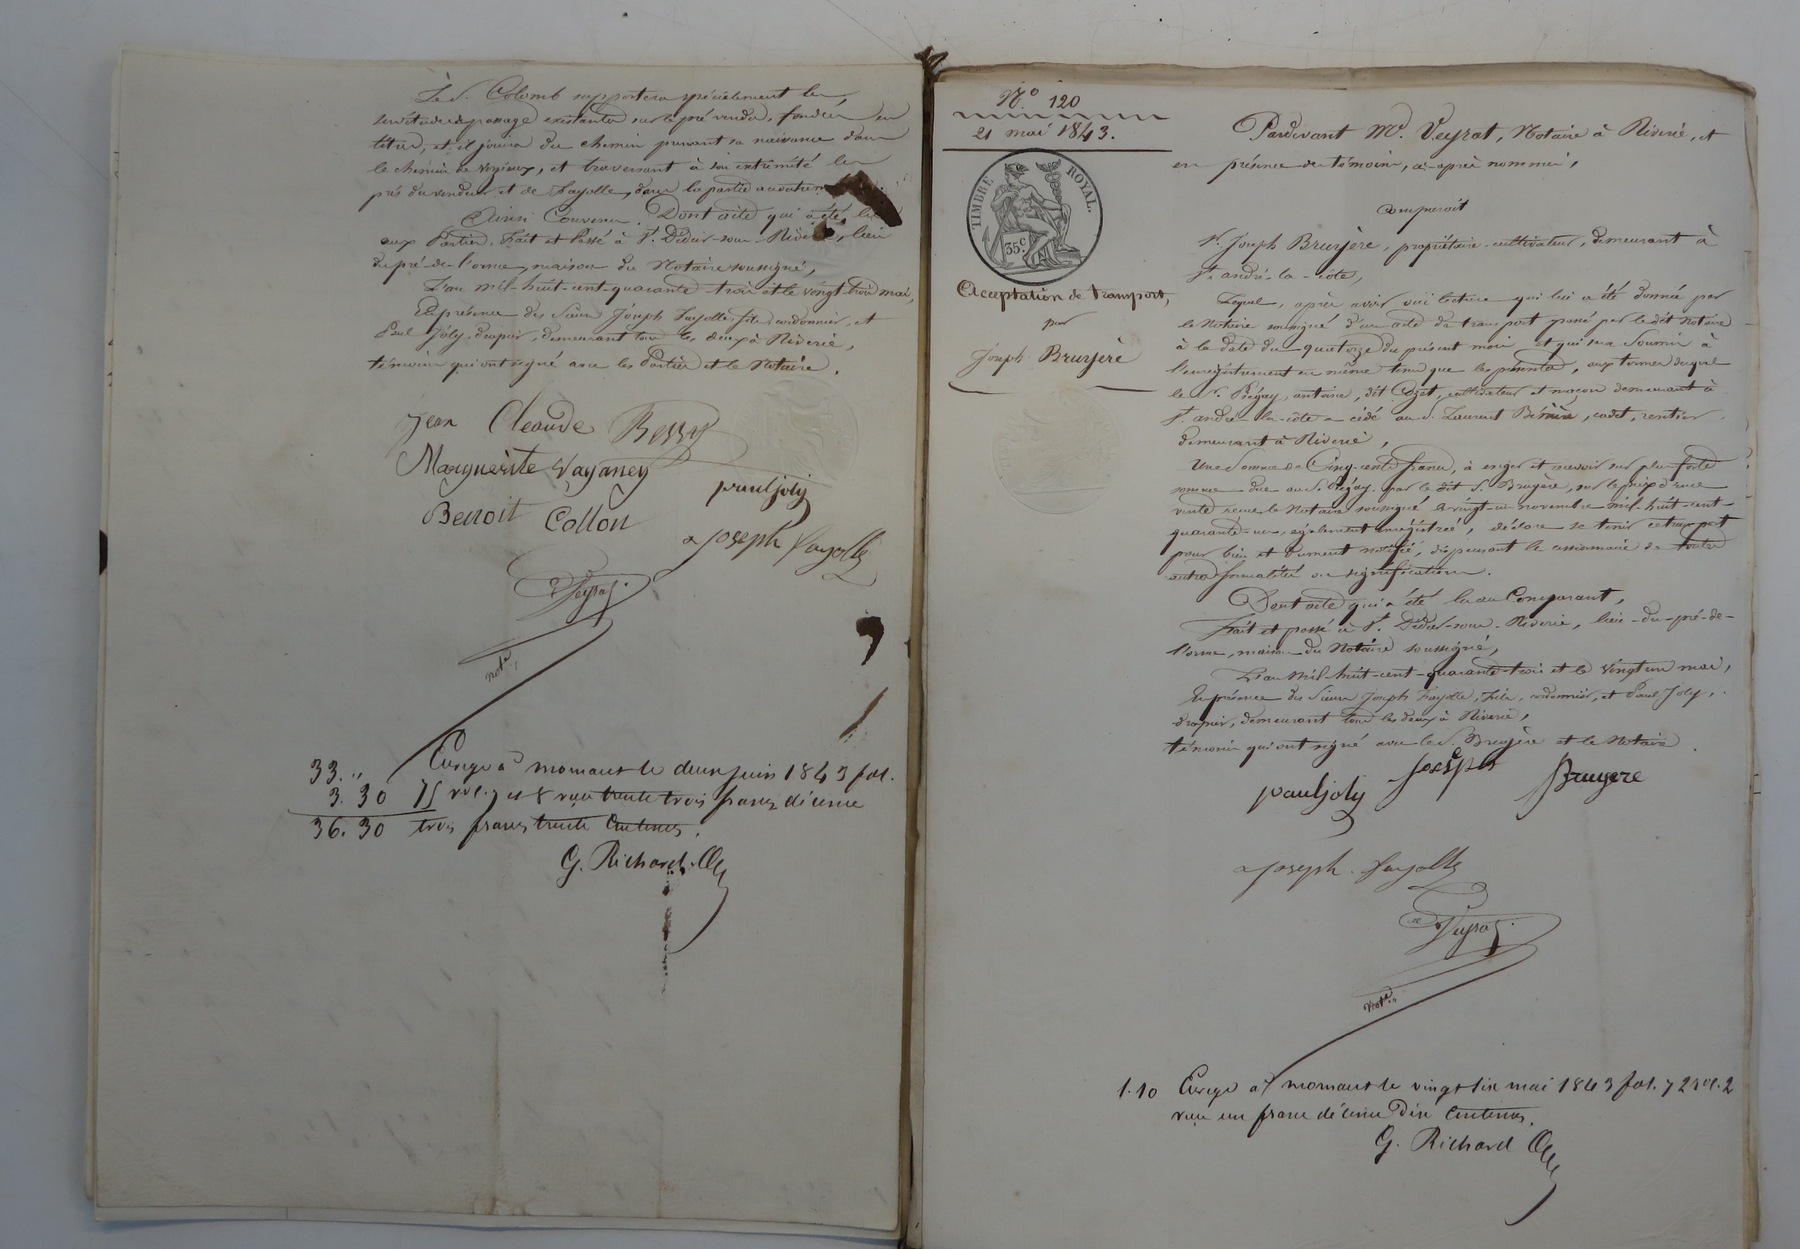 Le S. Colomb supportera spécialement les
servitudes de passage existantes sur le pré vendu, fondées en
titre, et il jouira du chemin prenant sa naissance dans
le chemin de, et traversant à son extrémité les
prés du vendeur et de Fayolle, dans la partie
Ainsi Convenu. Dont acte qui a été lu
aux Parties. Fait et Passé à St. Didier-sous-Riverie, lieu
du pré-de-l'orme, maison du Notaire soussigné,
L'an mil-huit-cent-quarante-trois et le vingt-trois mai,
En présence des Sieurs Joseph Fayolle, fils, cordonnier, et
Paul Joly, drapier, demeurant tous les deux à Riverie,
témoins qui ont signé avec les Parties et le Notaire.
Jean Cleaude Bessy
Marguerite Vaganey
pauljoly
Benoit Collon
Joseph fayolle
Veyrat
Notre
33. "
3. 30
36. 30
Enrégé à mornant le deux juin 1843 fol.
75 vol. 7 et 8 reçu trente trois francs décime
trois francs trente centimes.
G. Richard
N.º 120
21 mai 1843.
TIMBRE ROYAL.
35 c
Acceptation de transport,
par
Joseph Bruyère
Pardevant Me. Veyrat, Notaire à Riverie, et
en présence des témoins, ci-après nommés,
Comparait
Sr. Joseph Bruyère, propriétaire-cultivateur, demeurant à
St. andré-la-côte,
Lequel, après avoir ouï lecture qui lui a été donnée par
le Notaire soussigné d'un acte de transport passé par le dit Notaire
à la date du quatorze du présent mois et qui sera soumis à
l'enregistrement en même tems que les présentes, aux termes duquel
le Sr. antoine, dit Cozet, cultivateur et maçon demeurant à
St. andré-la-côte a cédé au S. Laurent, cadet, rentier,
demeurant à Riverie,
Une Somme de Cinq-cents francs, à exiger et recevoir sur plus forte
somme due au S. par le dit S. Bruyère, sur le prix d'une
vente reçue le Notaire soussigné le vingt-un novembre mil-huit-cent-
quarante-un, également enregistrée, déclare se tenir ce transport
pour bien et dument notifié, dispensant le cessionnaire de toutes
autres formalités ou signification.
Dont acte qui a été lu au Comparant,
Fait et passé à St. Didier-sous-Riverie, lieu-du-pré-de-
l'orme, maison du Notaire soussigné,
L'an Mil-huit-cent-quarante-trois et le vingt un mai,
En présence des Sieurs Joseph Fayolle, fils, cordonnier, et Paul Joly,
drapier, demeurant tous les deux à Riverie,
témoins qui ont signé avec le S. Bruyère et le Notaire.
pauljoly Joseph Bruyere
Joseph fayolle
Veyrat
Notre
1. 10 Enrégé à mornant le vingt six mai 1843 fol. 72 vol. 2
reçu un franc décime Dix centimes.
G. Richard